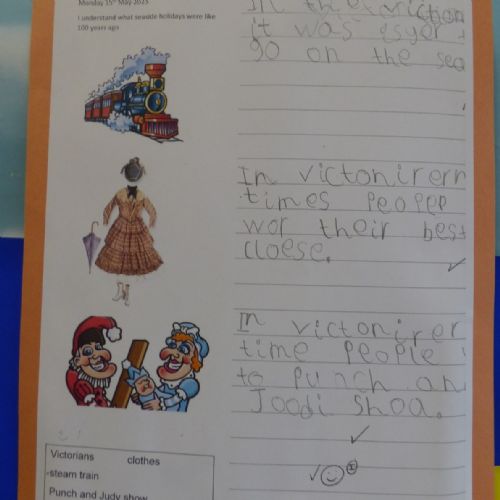 Monday 15th May 2023
I understand what seaside holidays were like
100 years ago
In the
it was
go on the sea
In victonirern
times People
wor their best
cloese.
In victonirer
time People
to Punch an
Joodi Shoa.
Victorians clothes
steam train
Punch and Judy show